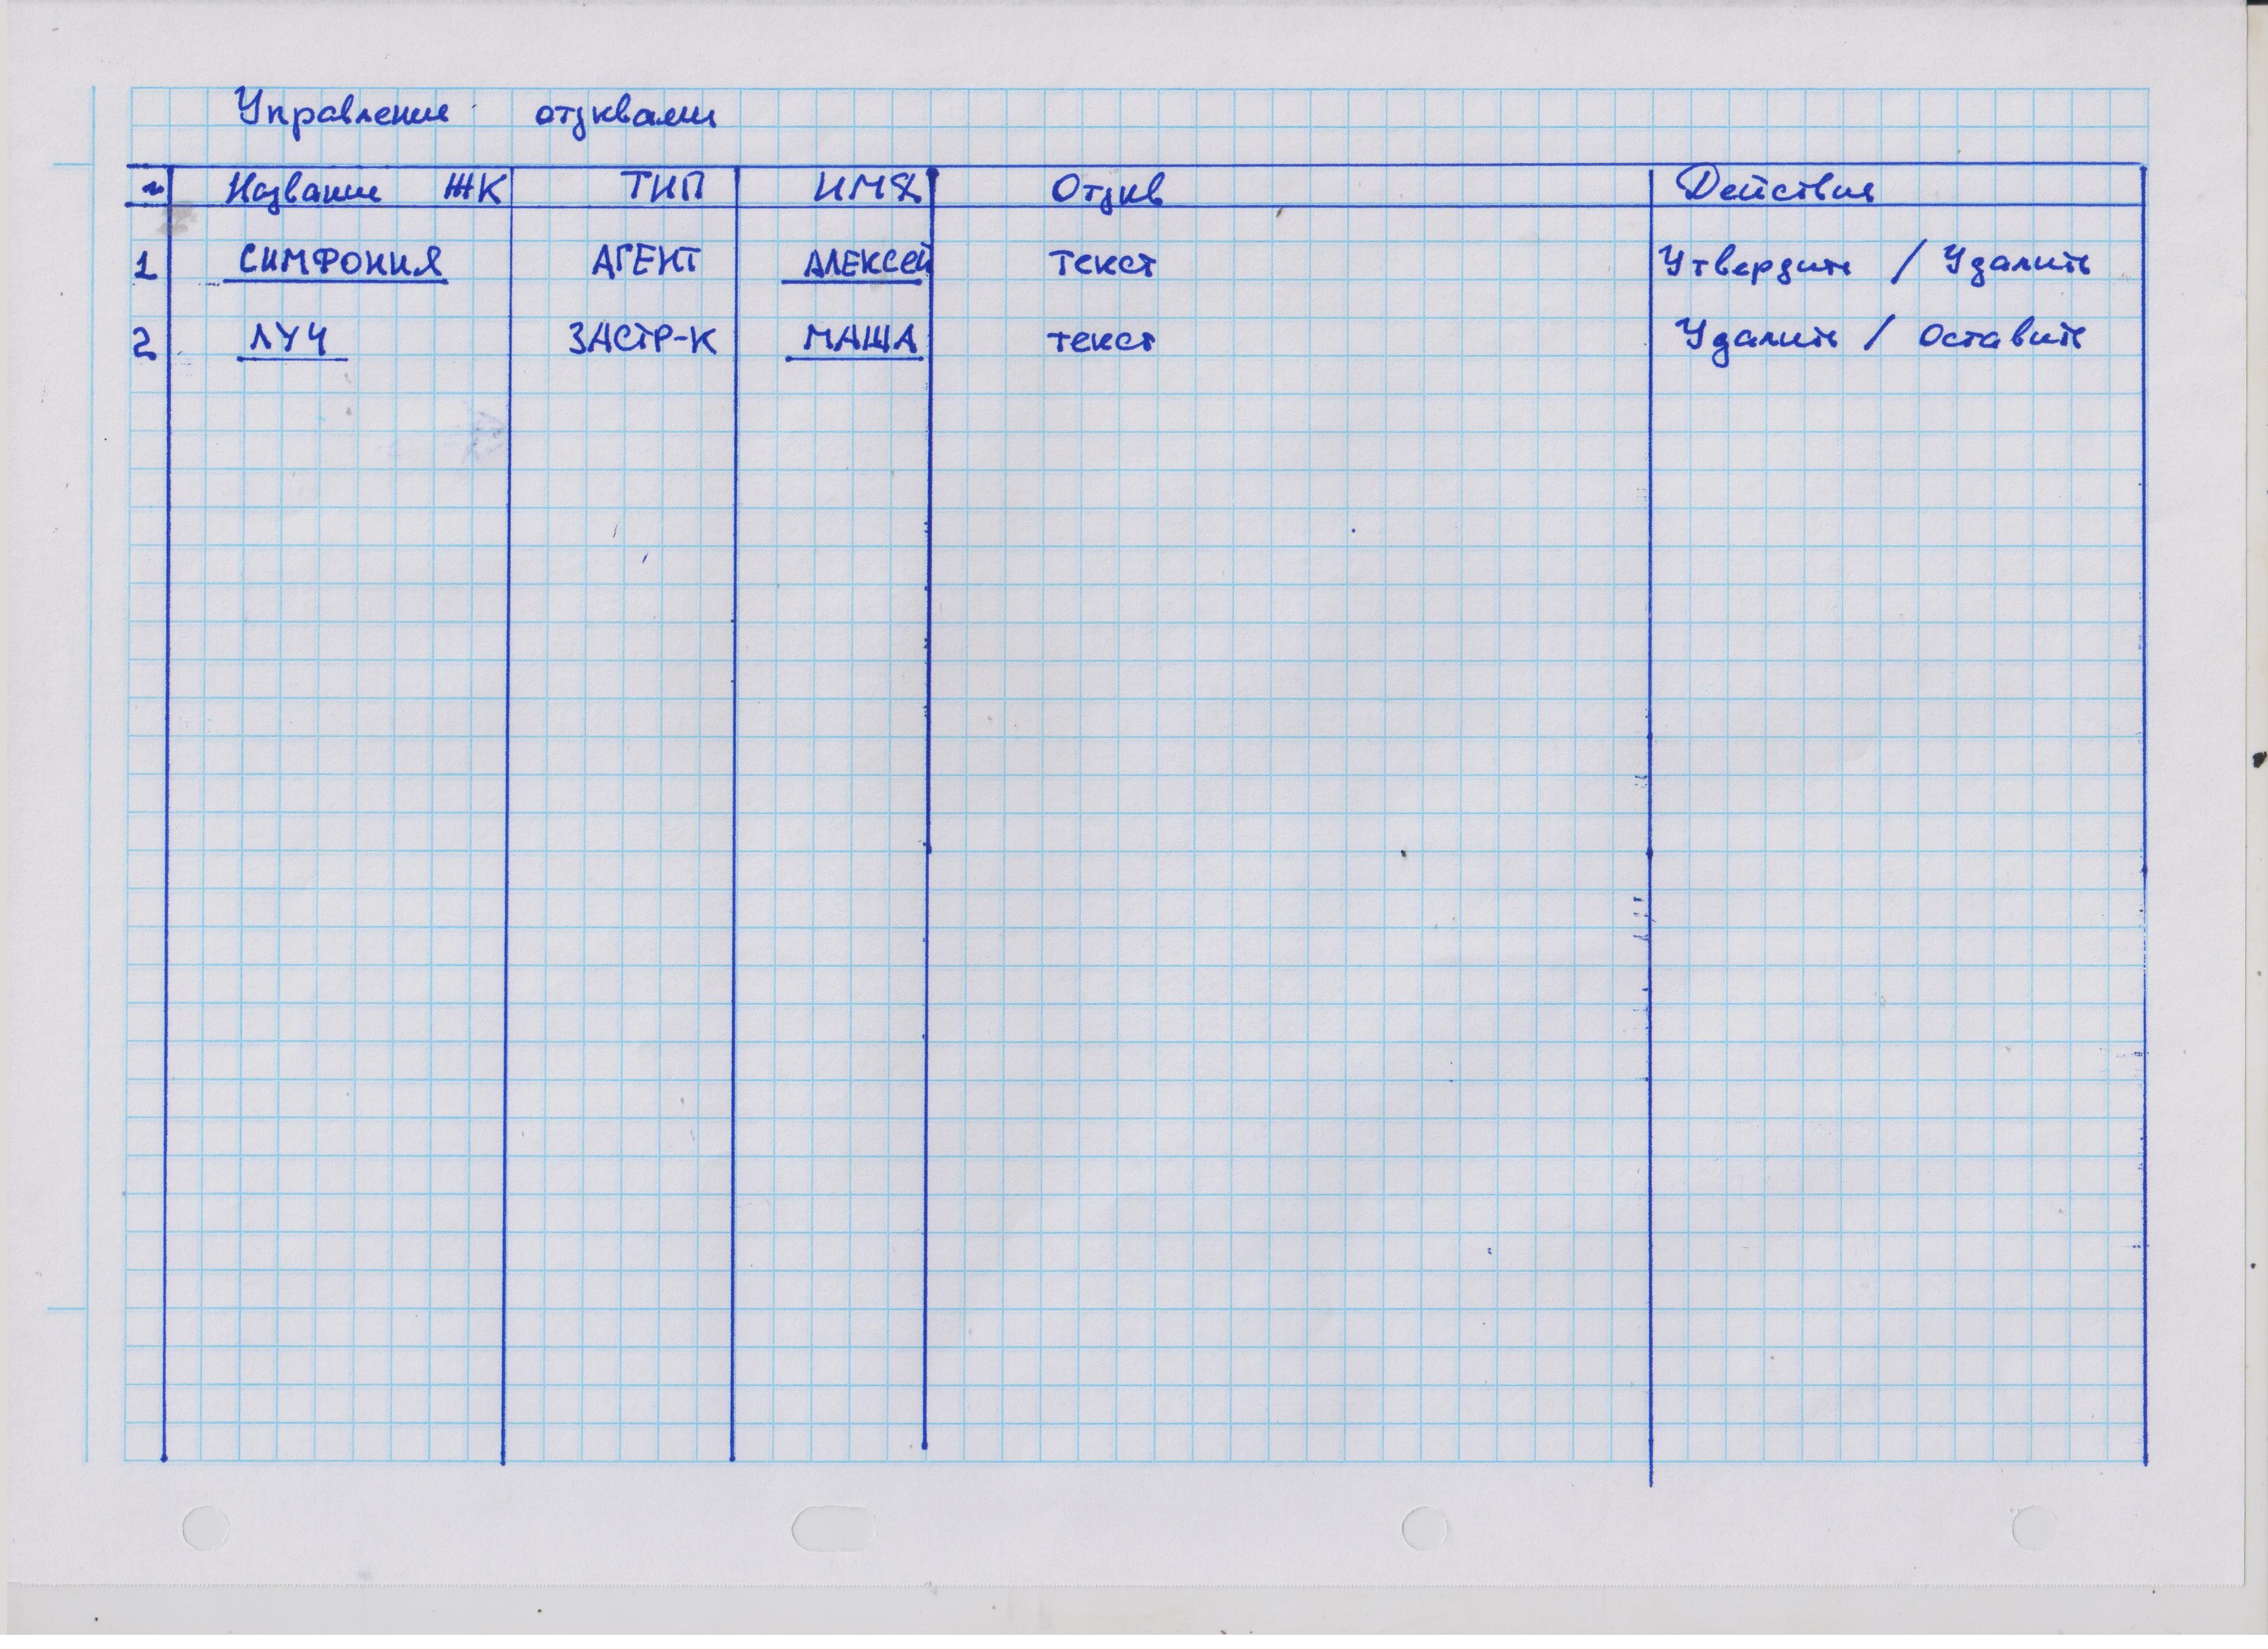 Управление отзывами
№ Название ЖК ТИП ИМЯ Отзыв Действия
1 СИМФОНИЯ АГЕНТ АЛЕКСЕЙ текст Утвердить / Удалить
2 ЛУЧ ЗАСТР-К МАША текст Удалить / Оставить